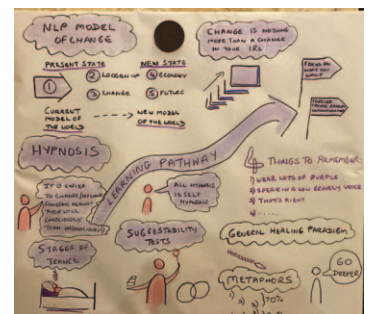 NLP MODEL
OF CHANGE
PRESENT STATE
NEW STATE
1
2 LOOSEN UP
3 CHANGE
4 ECOLOGY
5 FUTURE
CURRENT
MODEL OF
THE WORLD
NEW MODEL
OF THE WORLD
CHANGE IS NOTHING
MORE THAN A CHANGE
IN YOUR IRs
FOCUS ON
WHAT YOU
WANT
HYPNOSIS
IT IS EASIER
TO CHANGE
SOMEONE AGAINST
THEIR WILL
CONSCIOUSLY
THAN UNCONSCIOUSLY
LEARNING PATHWAY
ALL HYPNOSIS
IS SELF
HYPNOSIS
4 THINGS TO REMEMBER:
1) WEAR LOTS OF PURPLE
2) SPEAK IN A LOW GRAVELLY VOICE
3) THAT'S RIGHT
4) ......
STAGES OF
TRANCE
SUGGESTABILITY
TESTS
GENERAL HEALING PARADIGM
METAPHORS
1)
2)
3)
70%
GO
DEEPER